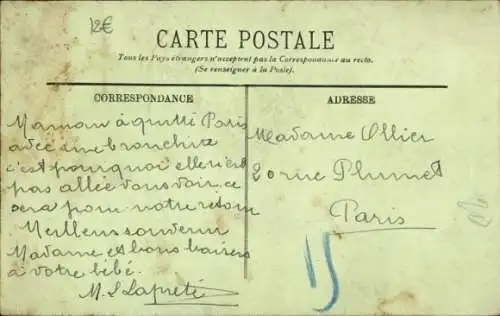 12€
CARTE POSTALE
Tous les Pays étrangers n'acceptent pas la Correspondance au recto.
(Se renseigner à la Poste).
CORRESPONDANCE
ADRESSE
Maman à quitté Paris
avec une bronchite
c'est pourquoi elle n'est
pas allée vous voir, ce
sera pour notre retour
Meilleurs souvenirs
Madame et bons baisers
à votre bébé.
M. L Lapreté
Madame Ollier
20 rue Plumet
Paris
15